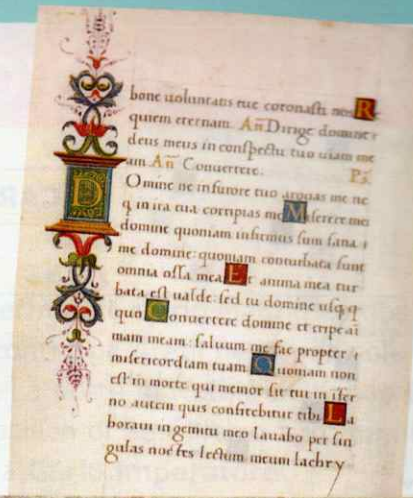 bone uoluntatis tue coronasti nos R
quiem eternam. Añ Dirige domine
deus meus in conspectu tuo uiam me
am Añ Conuertere. Ps.
Domine ne in furore tuo arguas me ne
q in ira tua corripias me Miserere mei
domine quoniam infirmus sum sana
me domine: quoniam conturbata sunt
omnia ossa mea Et anima mea tur
bata est ualde: sed tu domine usq q
quo Conuertere domine et eripe aī
mam meam: saluum me fac propter
misericordiam tuam Quoniam non
est in morte qui memor sit tui in īfer
no autem quis confitebitur tibi La
boraui in gemitu meo lauabo per sin
gulas noctes lectum meum lachry